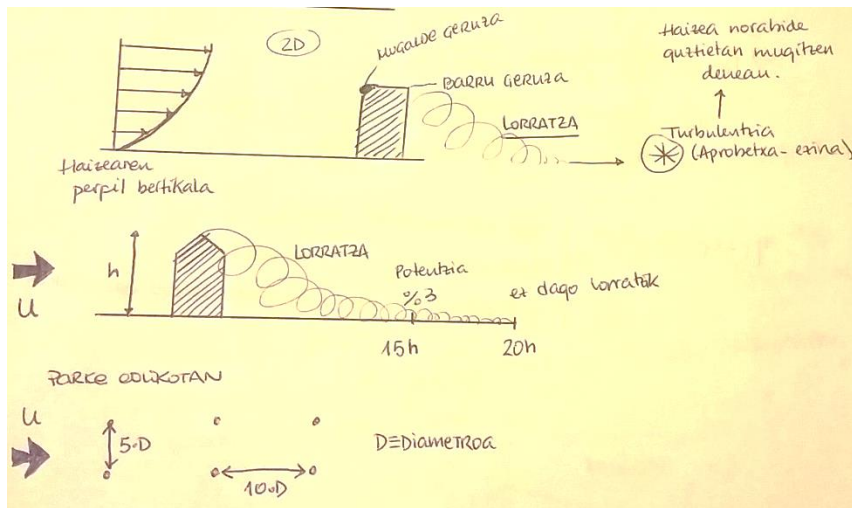 2D
MUGALDE GERUZA
BARRU GERUZA
LORRATZA
Haizea norabide
guztietan mugitzen
denean.
Turbulentzia
(Aprobetxa-ezina)
Haizearen
perfil bertikala
U
h
LORRATZA
Potentzia
%3
ez dago lorratzik
15h
20h
PARKE EOLIKOTAN
U
5·D
10·D
D≡Diametroa